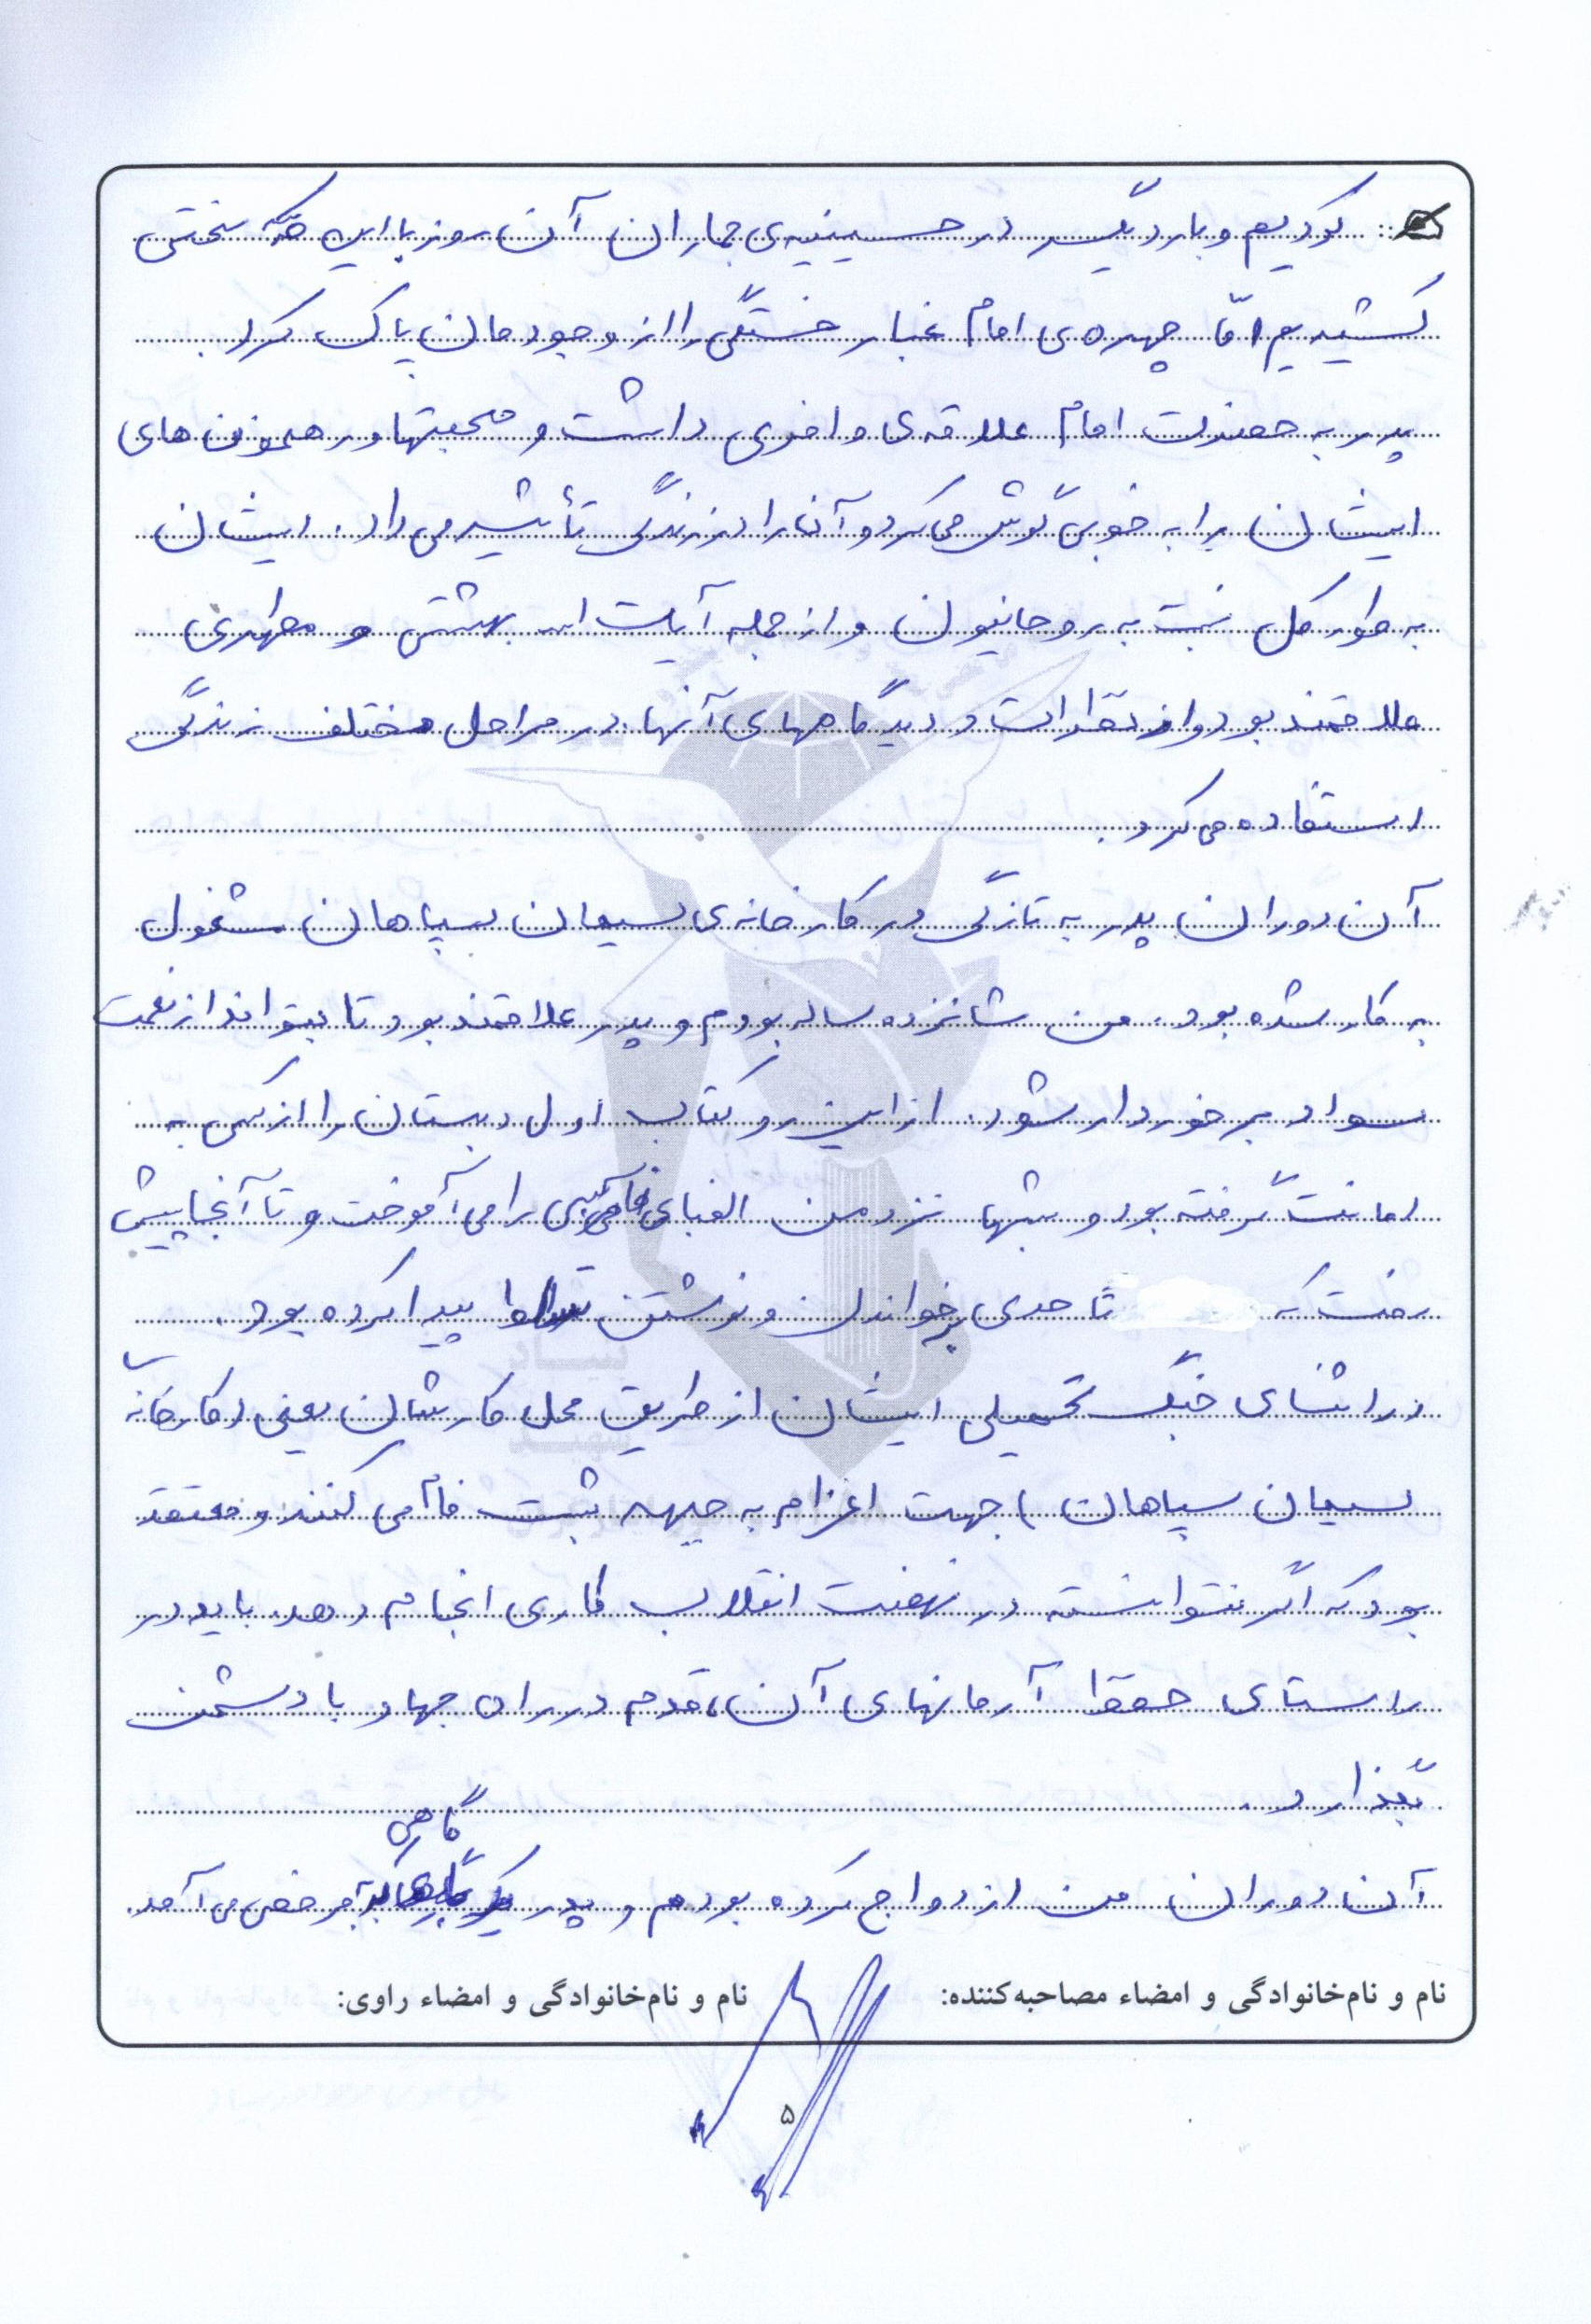 کردیم و بار دیگر در حسینیه‌ی جماران آن روز با این که سختی
کشیدیم امّا چهره‌ی امام غبار خستگی را از وجودمان پاک کرد.
پدر به حضرت امام علاقه‌ی وافری داشت و صحبتها و رهنمون‌های
ایشان را به خوبی گوش می‌کرد و آن را در زندگی تأثیر می‌داد. ایشان
به طور کل نسبت به روحانیون و از جمله آیات اله بهشتی و مطهری
علاقمند بود و از نظرات و دیدگاههای آنها در مراحل مختلف زندگی
استفاده می‌کرد.
آن دوران پدر به تازگی در کارخانه‌ی سیمان سپاهان مشغول
به کار شده بود. من شانزده ساله بودم و پدر علاقمند بود تا بتواند از نعمت
سواد برخوردار شود. از این رو کتاب اول دبستان را از کسی به
امانت گرفته بود و شبها نزد من الفبای فارسی را می‌آموخت و تا آنجا پیش
رفت که تا حدی خواندن و نوشتن را پیدا کرده بود.
در اثنای جنگ تحمیلی ایشان از طریق محل کارشان یعنی (کارخانه
سیمان سپاهان) جهت اعزام به جبهه ثبت نام می‌کنند و معتقد
بود که اگر نتوانسته در نهضت انقلاب کاری انجام دهد، باید در
راستای حفظ آرمانهای آن، قدم در راه جهاد با دشمن
بگذارد.
آن دوران من ازدواج کرده بودم و پدر گاهی به مرخصی می‌آمد.
نام و نام‌خانوادگی و امضاء مصاحبه‌کننده: نام و نام‌خانوادگی و امضاء راوی:
۵